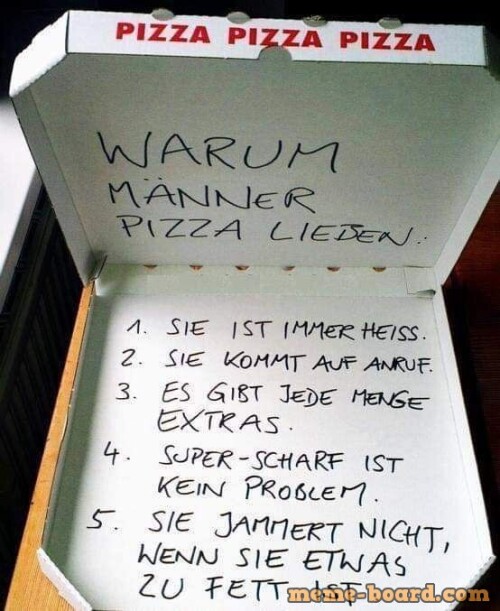 PIZZA PIZZA PIZZA
WARUM
MÄNNER
PIZZA LIEBEN:
1. SIE IST IMMER HEISS.
2. SIE KOMMT AUF ANRUF.
3. ES GIBT JEDE MENGE
EXTRAS.
4. SUPER-SCHARF IST
KEIN PROBLEM.
5. SIE JAMMERT NICHT,
WENN SIE ETWAS
ZU FETT IST
meme-board.com